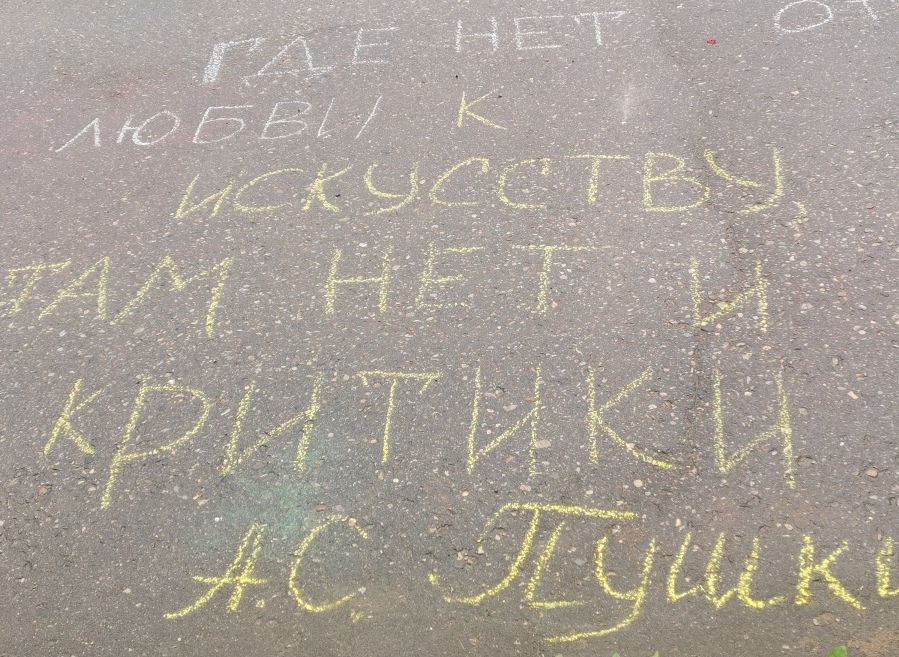 ГДЕ НЕТ
ЛЮБВИ К
ИСКУССТВУ,
ТАМ НЕТ И
КРИТИКИ
А.С. Пушки